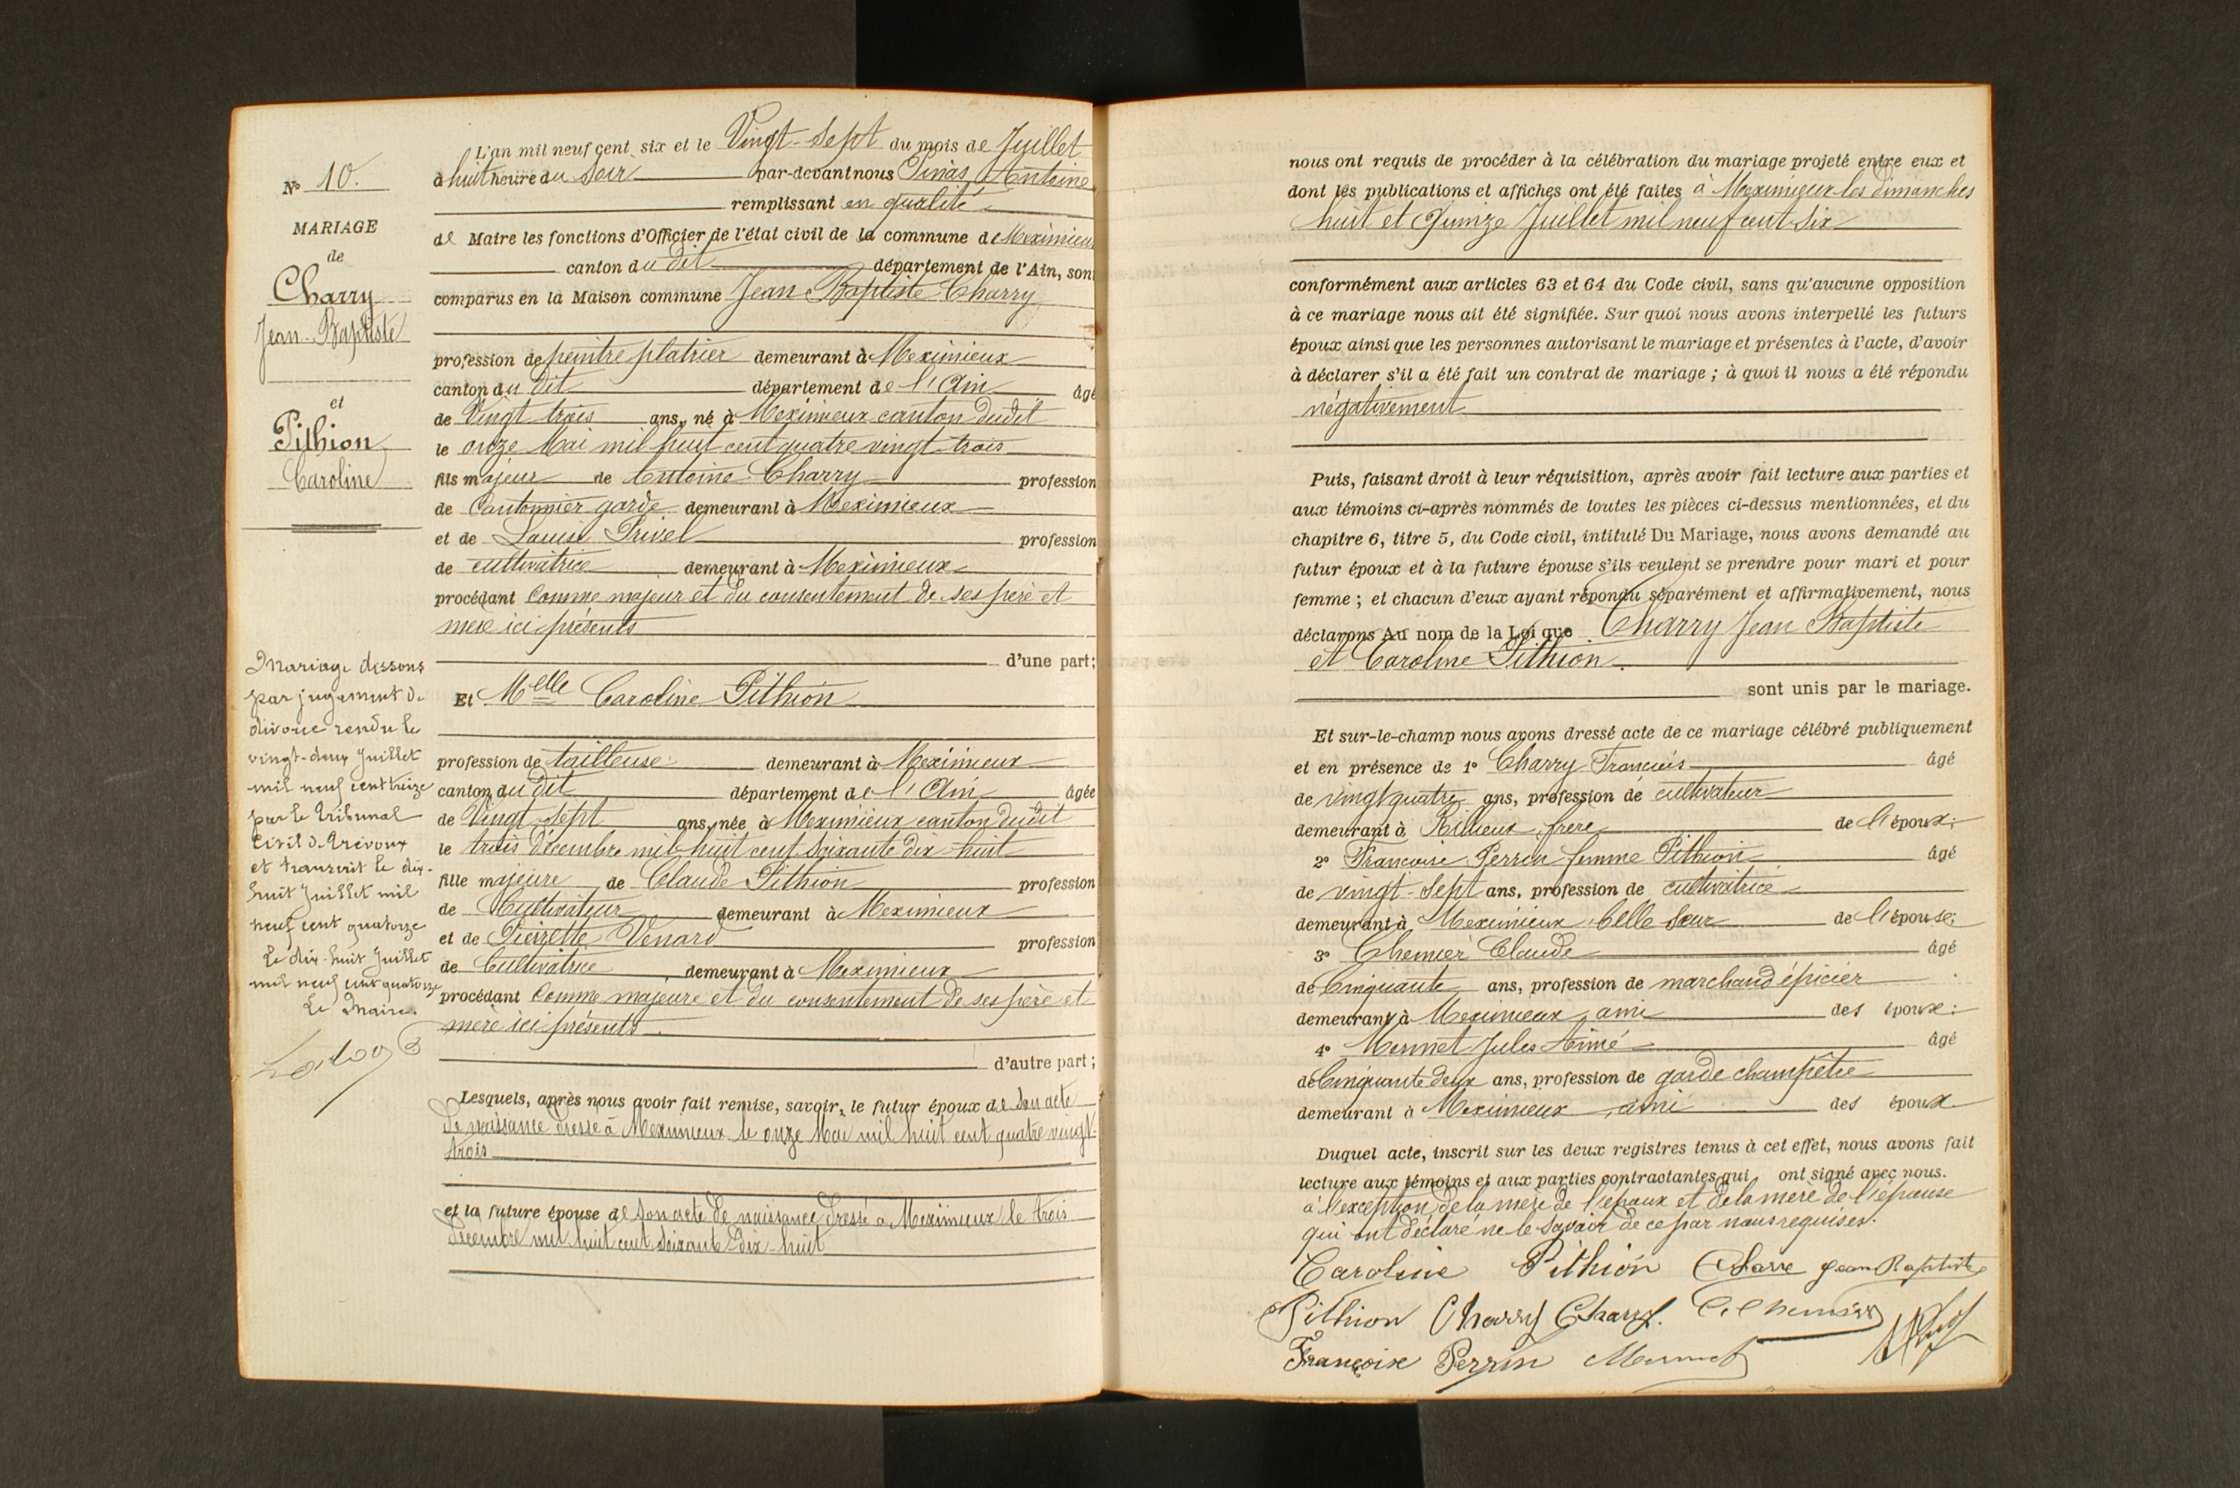 N° 10.
MARIAGE
de
Charry
Jean-Baptiste
et
Pithion
Caroline
Mariage dissous
par jugement de
divorce rendu le
vingt-deux Juillet
mil neuf cent treize
par le Tribunal
Civil de Trévoux
et transcrit le dix-
huit Juillet mil
neuf cent quatorze
Le dix-huit Juillet
mil neuf cent quatorze
Le Maire.
L'an mil neuf cent six et le Vingt-Sept du mois de Juillet
à huit heure du Soir par-devant nous Pinas Antoine
remplissant en qualité
de Maire les fonctions d'Officier de l'état civil de la commune de Meximieux
canton du dit département de l'Ain, sont
comparus en la Maison commune Jean Baptiste Charry
profession de peintre platrier demeurant à Meximieux
canton du dit département de l'Ain âgé
de Vingt trois ans, né à Meximieux canton dudit
le onze Mai mil huit cent quatre vingt-trois
fils majeur de Antoine Charry profession
de Cantonnier garde demeurant à Meximieux
et de Louise Privel profession
de cultivatrice demeurant à Meximieux
procédant Comme majeur et du consentement de ses père et
mère ici présents
d'une part;
Et Melle Caroline Pithion
profession de tailleuse demeurant à Meximieux
canton du dit département de l'Ain âgée
de Vingt-Sept ans, née à Meximieux canton dudit
le trois Décembre mil huit cent soixante dix-huit
fille majeure de Claude Pithion profession
de Cultivateur demeurant à Meximieux
et de Pierrette Venard profession
de Cultivatrice demeurant à Meximieux
procédant Comme majeure et du consentement de ses père et
mère ici présents.
d'autre part;
Lesquels, après nous avoir fait remise, savoir, le futur époux de Son acte
de naissance dressé à Meximieux le onze Mai mil huit cent quatre vingt-
trois
et la future épouse de Son acte de naissance dressé à Meximieux le trois
Décembre mil huit cent soixante dix-huit
nous ont requis de procéder à la célébration du mariage projeté entre eux et
dont les publications et affiches ont été faites à Meximieux les Dimanches
huit et Quinze Juillet mil neuf cent six
conformément aux articles 63 et 64 du Code civil, sans qu'aucune opposition
à ce mariage nous ait été signifiée. Sur quoi nous avons interpellé les futurs
époux ainsi que les personnes autorisant le mariage et présentes à l'acte, d'avoir
à déclarer s'il a été fait un contrat de mariage ; à quoi il nous a été répondu
négativement
Puis, faisant droit à leur réquisition, après avoir fait lecture aux parties et
aux témoins ci-après nommés de toutes les pièces ci-dessus mentionnées, et du
chapitre 6, titre 5, du Code civil, intitulé Du Mariage, nous avons demandé au
futur époux et à la future épouse s'ils veulent se prendre pour mari et pour
femme ; et chacun d'eux ayant répondu séparément et affirmativement, nous
déclarons Au nom de la Loi que Charry Jean Baptiste
et Caroline Pithion.
sont unis par le mariage.
Et sur-le-champ nous avons dressé acte de ce mariage célébré publiquement
et en présence de 1° Charry Francois âgé
de vingt quatre ans, profession de cultivateur
demeurant à frère de l'époux;
2° Francoise Perrin femme Pithion âgé
de vingt-Sept ans, profession de cultivatrice
demeurant à Meximieux belle Sœur de l'épouse;
3° Chemier Claude âgé
de Cinquante ans, profession de marchand épicier
demeurant à Meximieux ami des époux:
4° Mermet Jules Aimé âgé
de Cinquante deux ans, profession de garde champêtre
demeurant à Meximieux ami des époux
Duquel acte, inscrit sur les deux registres tenus à cet effet, nous avons fait
lecture aux témoins et aux parties contractantes qui ont signé avec nous.
à l'exception de la mère de l'époux et de la mère de l'épouse
qui ont déclaré ne le savoir de ce par nous requises.
Caroline Pithion Charre Jean Baptiste
Pithion Charry Charry. C. Chemier
Françoise Perrin Mermet